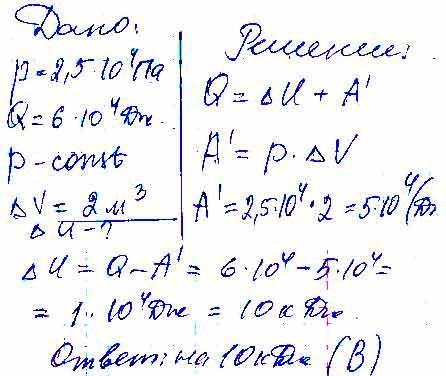 Дано:
p = 2,5·10⁴ Па
Q = 6·10⁴ Дж
p - const
ΔV = 2 м³
ΔU - ?
Решение:
Q = ΔU + A'
A' = p·ΔV
A' = 2,5·10⁴·2 = 5·10⁴ (Дж
ΔU = Q - A' = 6·10⁴ - 5·10⁴ =
= 1·10⁴ Дж = 10 кДж
Ответ: на 10 кДж (В)